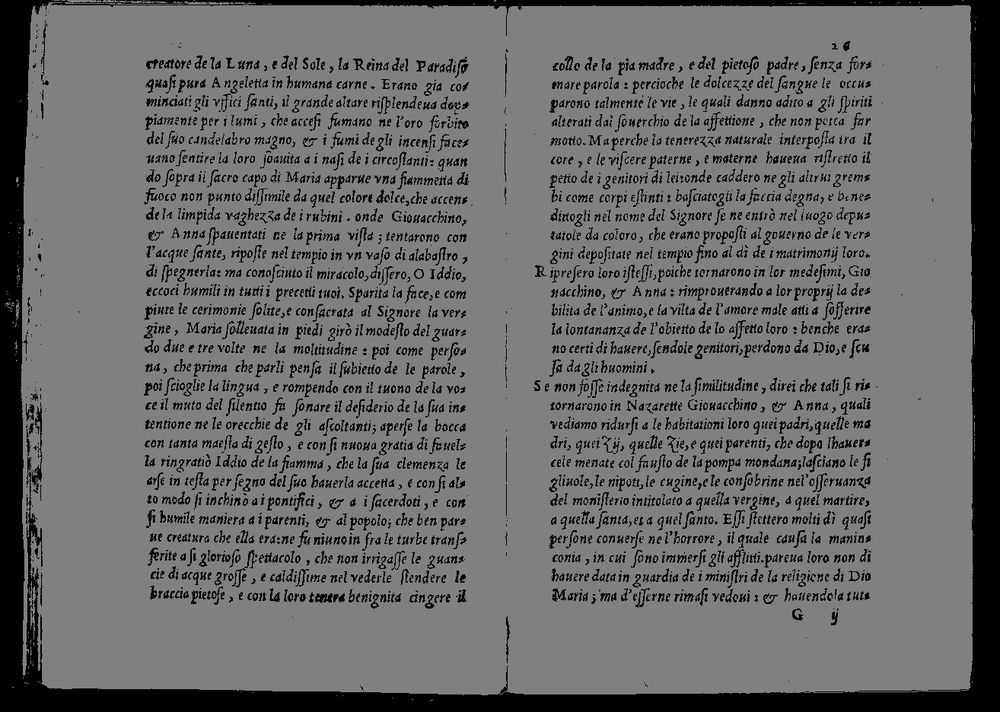 creatore de la Luna, e del Sole, la Reina del Paradiso
quasi pura Angeletta in humana carne. Erano gia co⸗
minciati gli vffici santi, il grande altare risplendeua dop⸗
piamente per i lumi, che accesi fumano ne l'oro forbito
del suo candelabro magno, & i fumi de gli incensi face⸗
uano sentire la loro soauita a i nasi de i circostanti: quan
do sopra il sacro capo di Maria apparue vna fiammetta di
fuoco non punto dissimile da quel colore dolce, che accen⸗
de la limpida vaghezza de i rubini. onde Giouacchino,
& Anna spauentati ne la prima vista; tentarono con
l'acque sante, riposte nel tempio in vn vaso di alabastro,
di spegnerla: ma conosciuto il miracolo, dissero, O Iddio,
eccoci humili in tutti i precetti tuoi. Sparita la face, e com
piute le cerimonie solite, e consacrata al Signore la ver⸗
gine, Maria solleuata in piedi girò il modesto del guar⸗
do due e tre volte ne la moltitudine: poi come perso⸗
na, che prima che parli pensa il subietto de le parole,
poi scioglie la lingua, e rompendo con il tuono de la vo⸗
ce il muto del silentio fa sonare il desiderio de la sua in⸗
tentione ne le orecchie de gli ascoltanti; aperse la bocca
con tanta maesta di gesto, e con si nuoua gratia di fauel⸗
la ringratiò Iddio de la fiamma, che la sua clemenza le
arse in testa per segno del suo hauerla accetta, e con si al⸗
to modo si inchinò a i pontifici, & a i sacerdoti, e con
si humile maniera a i parenti, & al popolo; che ben par⸗
ue creatura che ella era: ne fu niuno in fra le turbe trans⸗
ferite a si glorioso spettacolo, che non irrigasse le guan⸗
cie di acque grosse, e caldissime nel vederle stendere le
braccia pietose, e con la loro tenera benignita cingere il
26
collo de la pia madre, e del pietoso padre, senza for⸗
mare parola: percioche le dolcezze del sangue le occu⸗
parono talmente le vie, le quali danno adito a gli spiriti
alterati dal souerchio de la affettione, che non potea far
motto. Ma perche la tenerezza naturale interposta tra il
core, e le viscere paterne, e materne haueua ristretto il
petto de i genitori di lei: onde caddero ne gli altrui grem⸗
bi come corpi estinti: basciatogli la faccia degna, e bene⸗
dittogli nel nome del Signore se ne entrò nel luogo depu⸗
tatole da coloro, che erano proposti al gouerno de le ver⸗
gini depositate nel tempio fino al dì de i matrimonij loro.
Ripresero loro istessi, poiche tornarono in lor medesimi, Gio
uacchino, & Anna: rimprouerando a lor proprij la de⸗
bilita de l'animo, e la vilta de l'amore male atti a sofferire
la lontananza de l'obietto de lo affetto loro: benche era⸗
no certi di hauere, sendole genitori, perdono da Dio, e scu
sa da gli huomini.
Se non fosse indegnita ne la similitudine, direi che tali si ri⸗
tornarono in Nazarette Giouacchino, & Anna, quali
vediamo ridursi a le habitationi loro quei padri, quelle ma
dri, quei Zij, quelle Zie, e quei parenti, che dopo lhauer⸗
cele menate col fausto de la pompa mondana; lasciano le fi
gliuole, le nipoti, le cugine, e le consobrine nel'osseruanza
del monisterio intitolato a quella vergine, a quel martire,
a quella santa, et a quel santo. Essi stettero molti dì quasi
persone conuerse ne l'horrore, il quale causa la manin⸗
conia, in cui sono immersi gli afflitti. pareua loro non di
hauere data in guardia de i ministri de la religione di Dio
Maria; ma d'esserne rimasi vedoui: & hauendola tut⸗
G ij